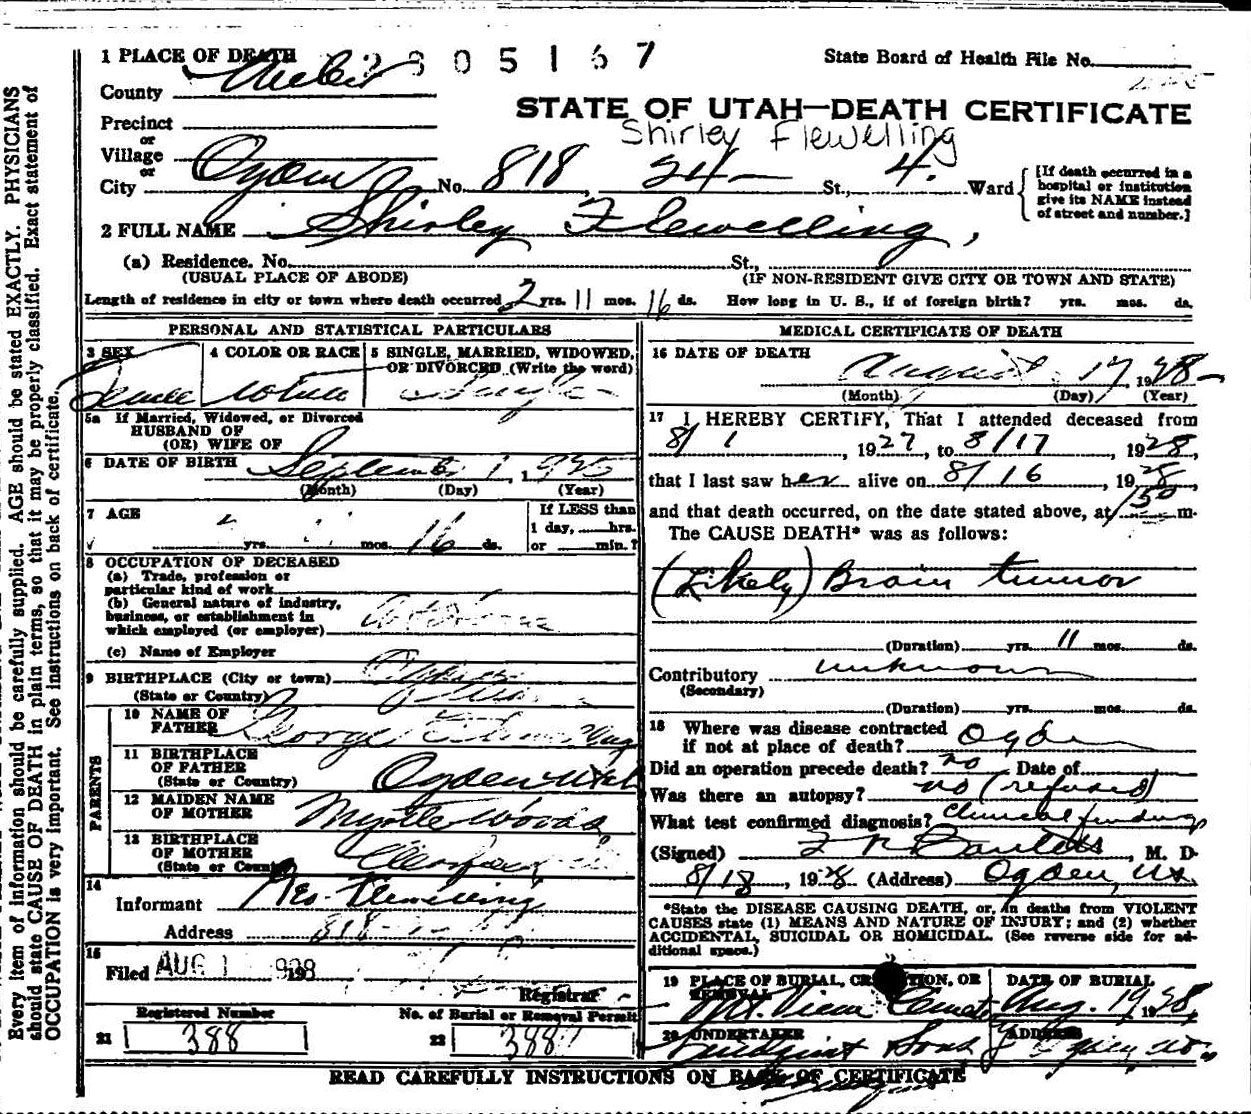 Every item of information should be carefully supplied. AGE should be stated EXACTLY. PHYSICIANS
should state CAUSE OF DEATH in plain terms, so that it may be properly classified. Exact statement of
OCCUPATION is very important. See instructions on back of certificate.
1 PLACE OF DEATH 305167 State Board of Health File No.
County Weber
STATE OF UTAH—DEATH CERTIFICATE
Precinct
or
Shirley Flewelling
Village
or
City Ogden No. 818 24 St., 4. Ward
[If death occurred in a
hospital or institution
give its NAME instead
of street and number.]
2 FULL NAME Shirley Flewelling,
(a) Residence. No. St.,
(USUAL PLACE OF ABODE) (IF NON-RESIDENT GIVE CITY OR TOWN AND STATE)
Length of residence in city or town where death occurred 2 yrs. 11 mos. 16 ds. How long in U. S., if of foreign birth? yrs. mos. ds.
PERSONAL AND STATISTICAL PARTICULARS
3 SEX 4 COLOR OR RACE 5 SINGLE, MARRIED, WIDOWED,
OR DIVORCED (Write the word)
Female White Single
5a If Married, Widowed, or Divorced
HUSBAND OF
(OR) WIFE OF
6 DATE OF BIRTH September 1, 1925
(Month) (Day) (Year)
7 AGE If LESS than
1 day, hrs.
yrs. mos. 16 ds. or min.?
8 OCCUPATION OF DECEASED
(a) Trade, profession or
particular kind of work
(b) General nature of industry,
business, or establishment in
which employed (or employer) At Home
(c) Name of Employer
9 BIRTHPLACE (City or town)
(State or Country)
PARENTS
10 NAME OF
FATHER George Flewelling
11 BIRTHPLACE
OF FATHER
(State or Country) Ogden Utah
12 MAIDEN NAME
OF MOTHER Myrtle Woods
13 BIRTHPLACE
OF MOTHER
(State or Country)
14
Informant Flewelling
Address 818
15
Filed AUG 1 1928
Registrar
Registered Number No. of Burial or Removal Permit
21 388 22 388
MEDICAL CERTIFICATE OF DEATH
16 DATE OF DEATH
August 17, 1928
(Month) (Day) (Year)
17 I HEREBY CERTIFY, That I attended deceased from
8/1, 1927, to 8/17 1928,
that I last saw her alive on 8/16, 1928
and that death occurred, on the date stated above, at 150 m.
The CAUSE DEATH* was as follows:
(Likely) Brain tumor
(Duration) yrs. 11 mos. ds.
Contributory unknown
(Secondary)
(Duration) yrs. mos. ds.
18 Where was disease contracted
if not at place of death? Ogden
Did an operation precede death? no Date of
Was there an autopsy? no (refused)
What test confirmed diagnosis? Clinical findings
(Signed) , M. D.
8/18, 1928 (Address) Ogden, Ut.
*State the DISEASE CAUSING DEATH, or, in deaths from VIOLENT
CAUSES state (1) MEANS AND NATURE OF INJURY; and (2) whether
ACCIDENTAL, SUICIDAL OR HOMICIDAL. (See reverse side for ad-
ditional space.)
19 PLACE OF BURIAL, CREMATION, OR DATE OF BURIAL
REMOVAL
Mt. View Cemetery Aug. 19, 1928,
20 UNDERTAKER ADDRESS
Lindquist Sons Ogden, Ut.
READ CAREFULLY INSTRUCTIONS ON BACK OF CERTIFICATE